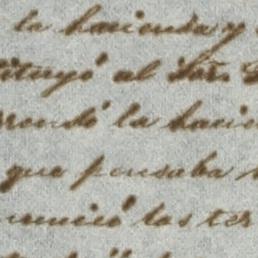 la hacienda y
tituyó al Sor.
rrendó la hacien
que pensaba
unició los ter